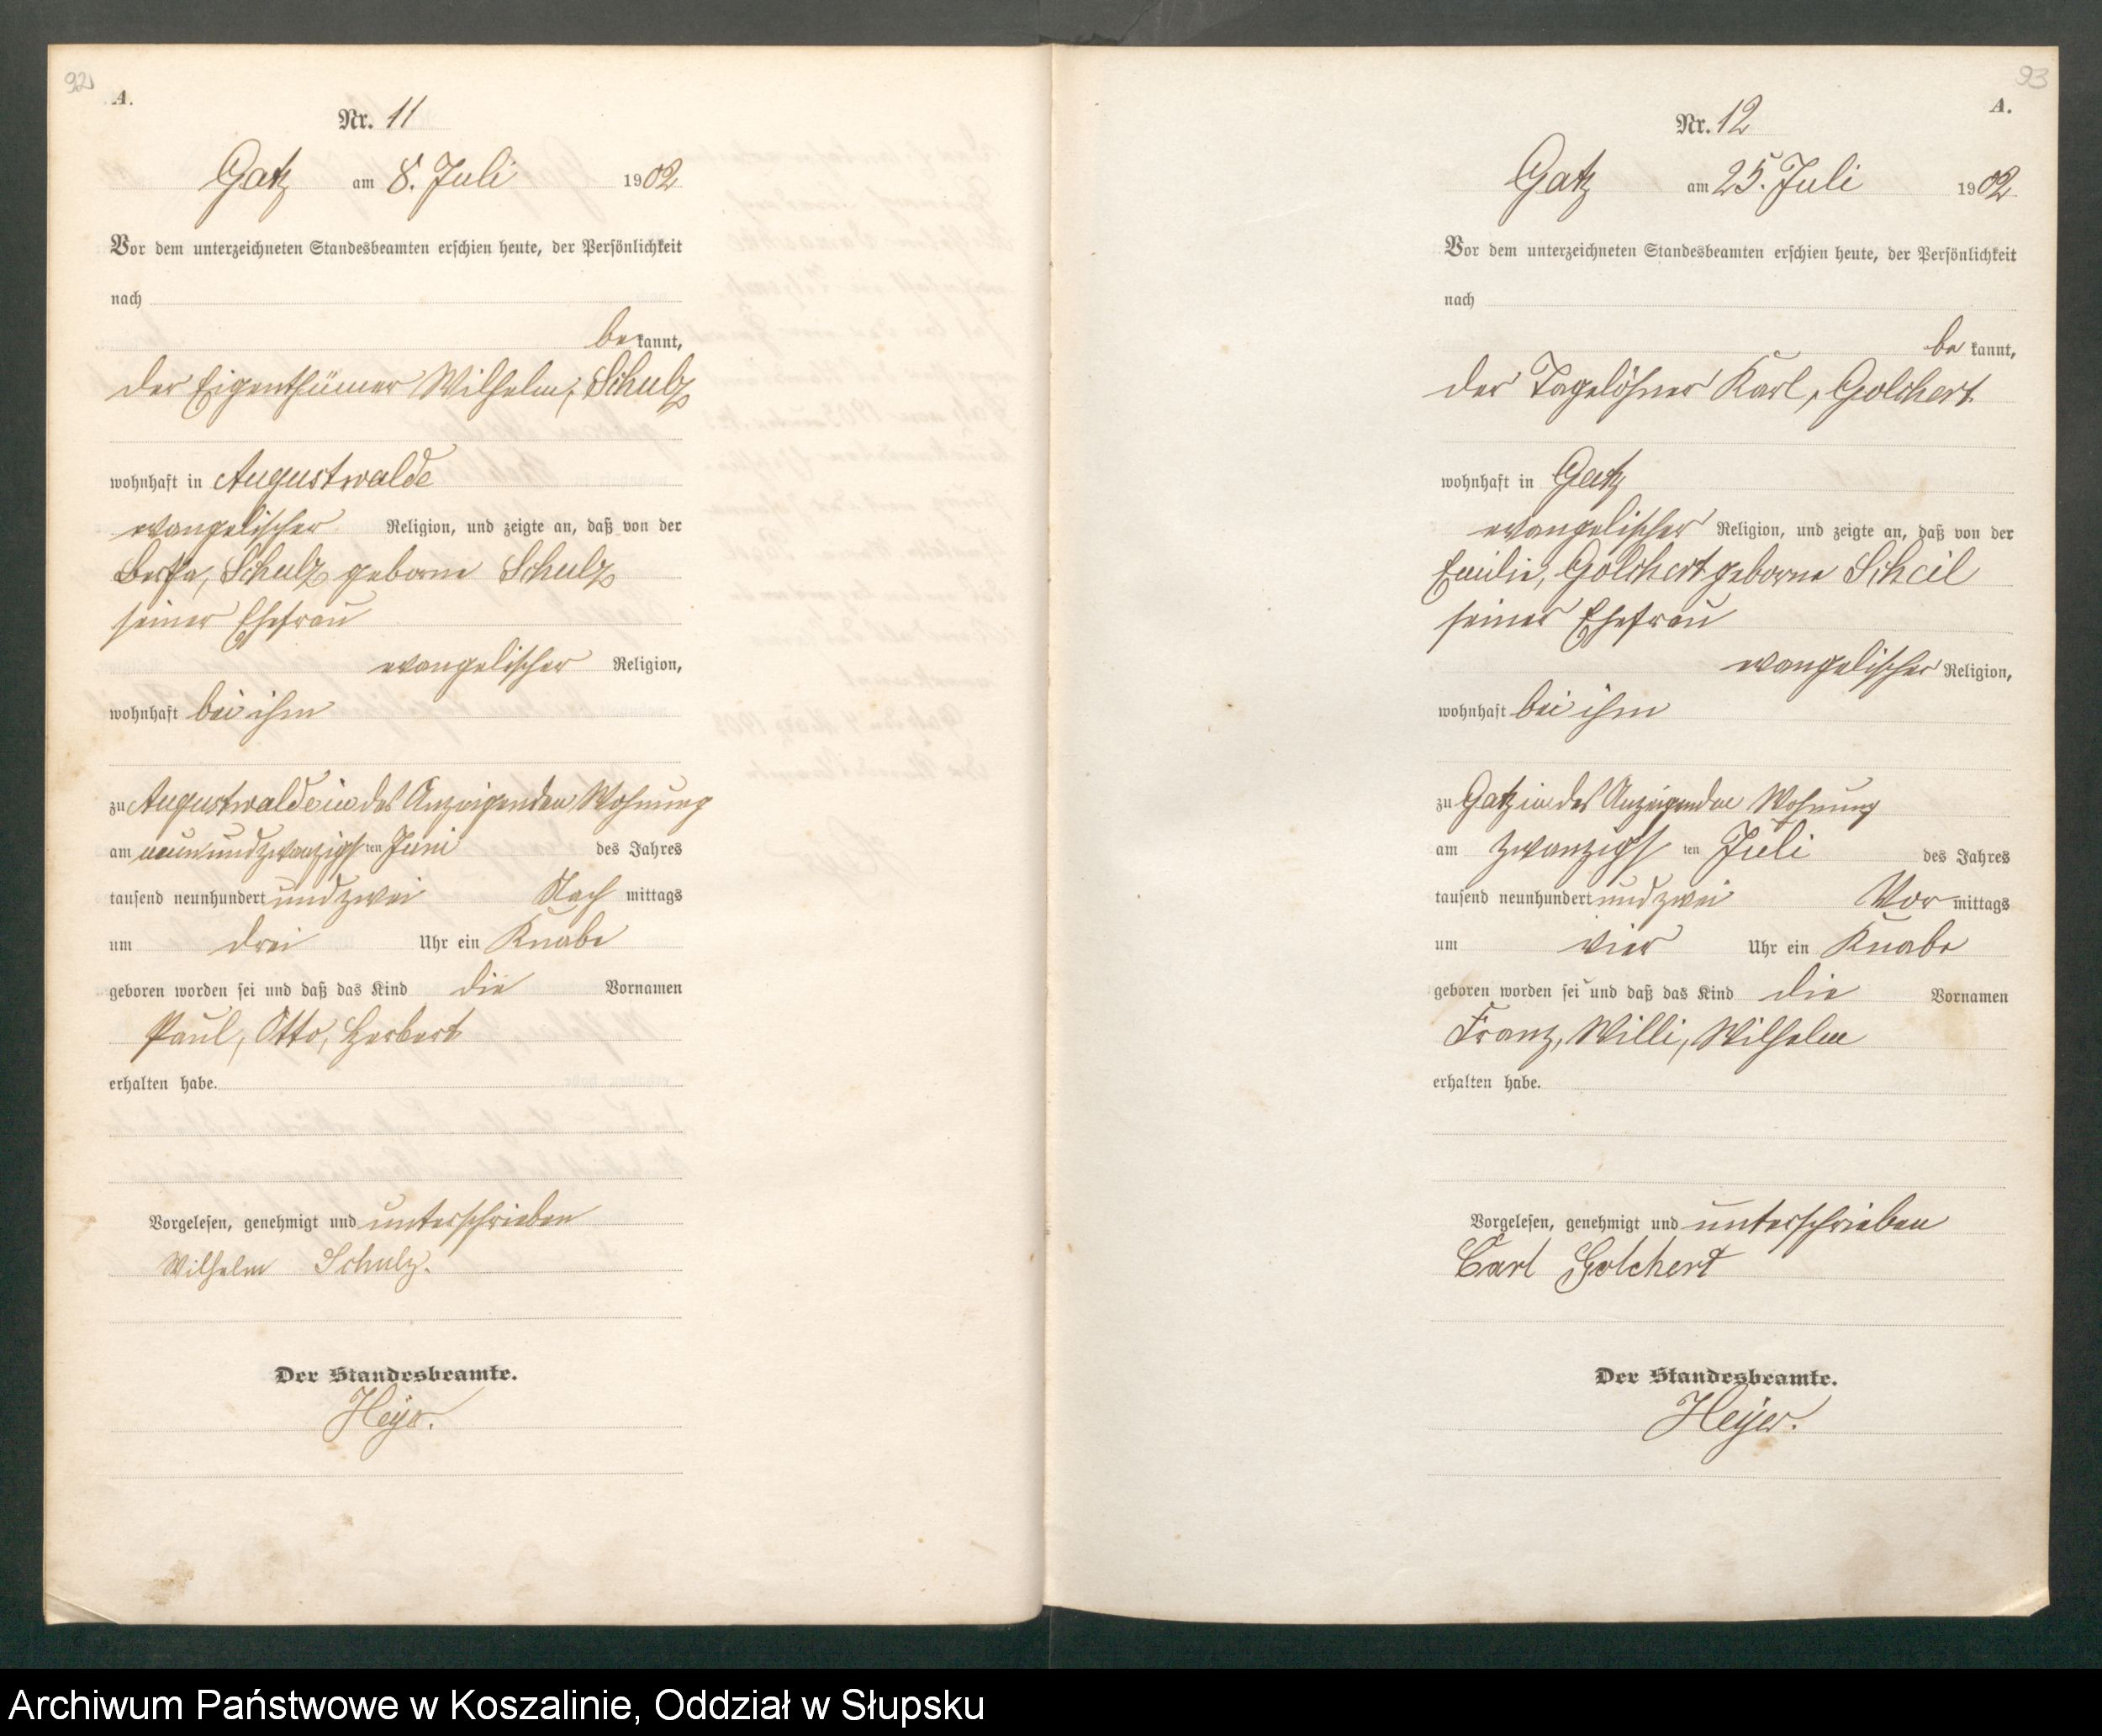 92
A.
Nr. 11
Gatz am 8. Juli 1902
Vor dem unterzeichneten Standesbeamten erschien heute, der Persönlichkeit
nach
be kannt,
der Eigenthümer Wilhelm, Schulz
wohnhaft in Augustwalde
evangelischer Religion, und zeigte an, daß von der
Schulz geborne Schulz
seiner Ehefrau
evangelischer Religion,
wohnhaft bei ihm
zu Augustwalde in des Anzeigenden Wohnung
am neunundzwanzigsten Juni des Jahres
tausend neunhundert und zwei Nach mittags
um drei Uhr ein Knabe
geboren worden sei und daß das Kind die Vornamen
Paul, Otto, Herbert
erhalten habe.
Vorgelesen, genehmigt und unterschrieben
Wilhelm Schulz.
Der Standesbeamte.
Heyer.
93
A.
Nr. 12
Gatz am 25. Juli 1902
Vor dem unterzeichneten Standesbeamten erschien heute, der Persönlichkeit
nach
be kannt,
der Tagelöhner Karl, Golchert
wohnhaft in Gatz
evangelischer Religion, und zeigte an, daß von der
Emilie, Golchert geborne Scheil
seiner Ehefrau
evangelischer Religion,
wohnhaft bei ihm
zu Gatz in des Anzeigenden Wohnung
am zwanzigsten Juli des Jahres
tausend neunhundert und zwei Vor mittags
um vier Uhr ein Knabe
geboren worden sei und daß das Kind die Vornamen
Franz, Willi, Wilhelm
erhalten habe.
Vorgelesen, genehmigt und unterschrieben
Carl Golchert
Der Standesbeamte.
Heyer.
Archiwum Państwowe w Koszalinie, Oddział w Słupsku